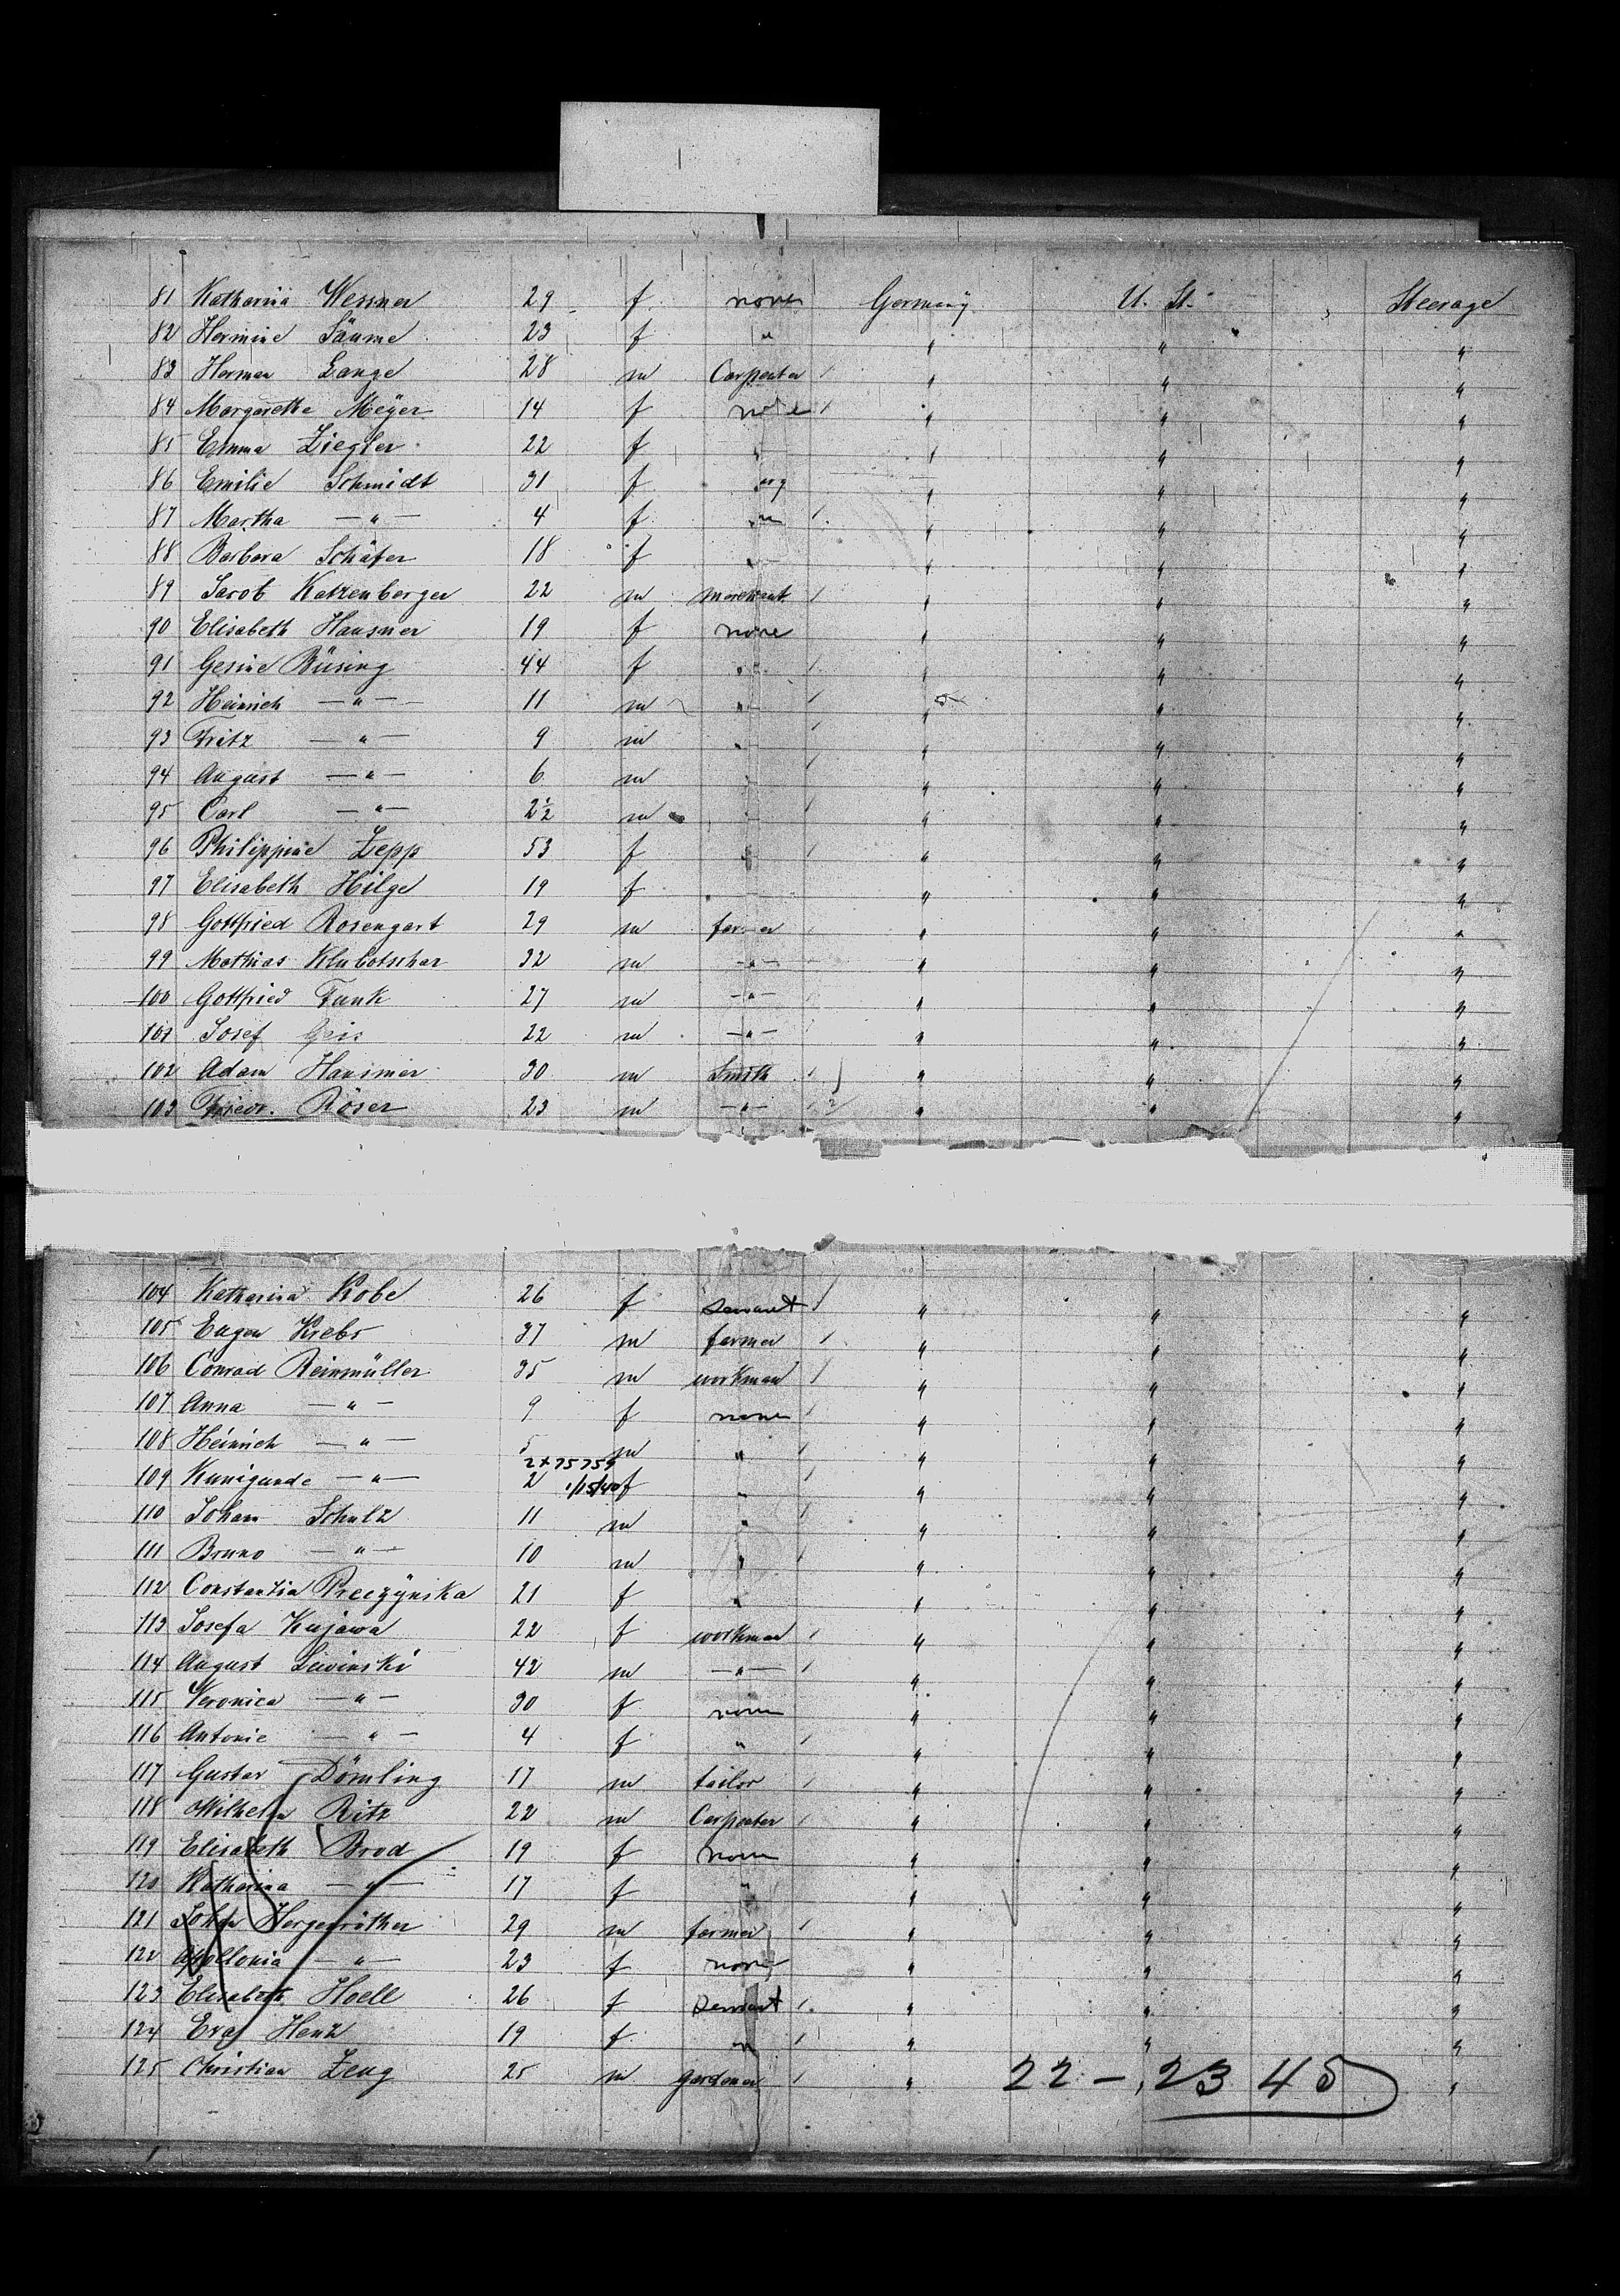 81 Katharina Wessner 29 f none Germany U. St. Steerage
82 Hermine Säume 23 f " " " "
83 Herman Lange 28 m Carpenter " " "
84 Margarethe Meÿer 14 f none " " "
85 Emma Ziegler 22 f " " " "
86 Emilie Schmidt 31 f " " " "
87 Martha —"— 4 f " " " "
88 Barbara Schäfer 18 f " " " "
89 Jacob Katzenberger 22 m merchant " " "
90 Elisabeth Hausner 19 f none " " "
91 Gesine Büsing 44 f " " " "
92 Heinrich —"— 11 m " " " "
93 Fritz —"— 9 m " " " "
94 August —"— 6 m " " " "
95 Carl —"— 2½ m " " " "
96 Philippine Zepp 53 f " " " "
97 Elisabeth Hilge 19 f " " "
98 Gottfried Rosengart 29 m farmer " " "
99 Mathias Klubotschar 32 m —"— " " "
100 Gottfried Funk 27 m —"— " " "
101 Josef Geis 22 m —"— " " "
102 Adam Hausmer 30 m Smith " " "
103 Friedr. Röser 23 m —"— " " "
104 Katharina Kobe 26 f Servant " " "
105 Eugen Krebs 37 m farmer " " "
106 Conrad Reinmüller 35 m workman " " "
107 Anna —"— 9 f none " " "
108 Heinrich —"— 5 m " " " "
2x75759
109 Kunigunde —"— 2 1/15/40 f " " " "
110 Johann Schulz 11 m " " " "
111 Bruno —"— 10 m " " " "
112 Constantia Preczÿnska 21 f " " " "
113 Josefa Kujawa 22 f workman " " "
114 August Lewinski 42 m —"— " " "
115 Veronica —"— 30 f none " " "
116 Antonie —"— 4 f " " " "
117 Gustav Dömling 17 m tailor " " "
118 Wilhelm Ritz 22 m Carpenter " " "
119 Elisabeth Brod 19 f none " " "
120 Katharina —"— 17 f " " " "
121 John Hergenröther 29 m farmer " " "
122 Apollonia —"— 23 f none " " "
123 Elisabeth Hoell 26 f Servant " " "
124 Eva Henz 19 f " " " "
125 Christian Zeug 25 m gardener " " "
22 – 23 45